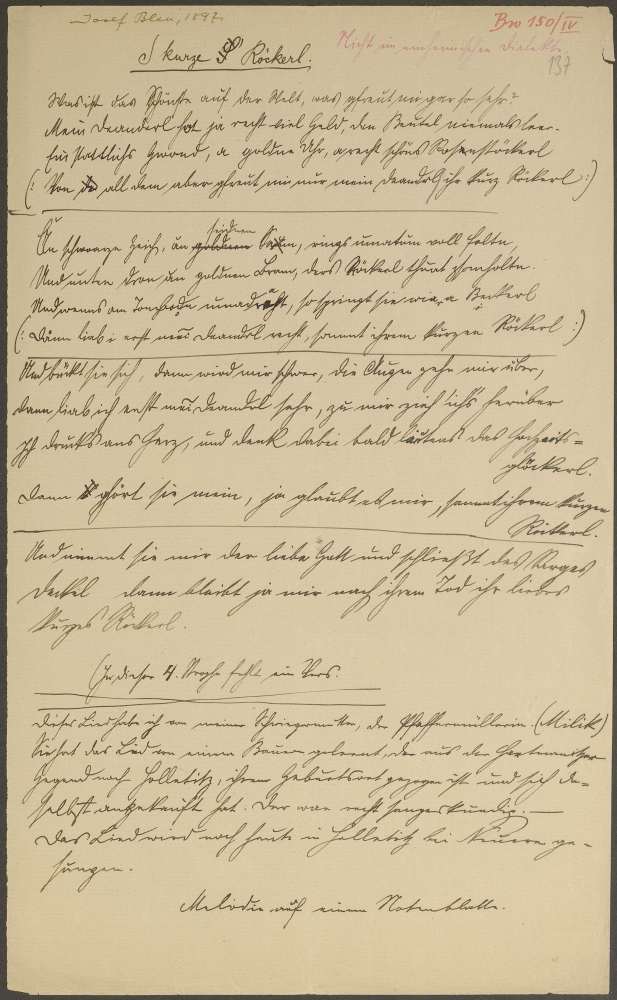 Josef Blau, 1897.
Bro 150/IV
Nicht im einheimischen Dialekte.
137
S kurze Röckerl.
Was ist das Schönste auf der Welt, was gfreut mi gar so sehr?
Mein Deanderl hat ja recht viel Geld, den Beutel niemals leer.
Ein stattlichs Gwand, a goldne Uhr, a recht schöns Rosenstöckerl
(: Von all dem aber gfreut mi nur mein Deandrl ihr kurz Röckerl :)
An schwarzn Zeich, an goldnen seidnen Sam, rings umatum voll Faltn,
Und unten dron an goldnen Bram, ders Röckerl thuat zsomhaltn.
Und wenns am Tonzbodn umadraht, so springt sie wia a Beckerl
(: Dann liab i erst mei Deandrl recht, sammt ihrem kurzen Röckerl :)
Und bückt sie sich, dann wird mir schwer, die Augen gehn mir über,
dann liab ich erst mei Deandrl sehr, zu mir zieh' ich's herüber
Ich druck's ans Herz, und denk dabei bald läutens' das Hochzeits=
glöckerl.
Dann ghört sie mein, ja glaubt es mir, sammt ihrem kurzen
Röckerl.
Und nimmt sie mir der liebe Gott und schließt des Sarges
Deckel dann bleibt ja mir nach ihrem Tod ihr liebes
kurzes Röckerl.
(In dieser 4. Strophe fehlt ein Vers.
Dieses Lied habe ich von meiner Schwiegermutter, der Pfaffermüllerin (Milik)
Sie hat das Lied von einem Bauern gelernt, der aus der
Gegend nach Holletitz, ihrem Geburtsort gezogen ist und sich da=
selbst angekauft hat. Der war recht sangeskundig. —
Das Lied wird noch heute in Holletitz bei Neuern ge=
sungen.
Melodie auf einem Notenblatte.